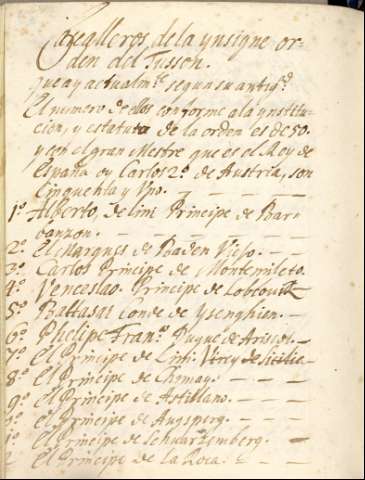 Cavalleros de la ynsigne or-
den del Tusson.
que ay actualm.te segun su antig.d
El numero de ellos conforme a la ynstitu-
cion, y estatuto de la orden es de 50.
y con el gran Mestre que es el Rey de
España oy Carlos 2.º de Austria, son
Cinquenta y Uno.
1.º Alberto, de Lini Principe de Bar-
banzon.
2.º El Marques de Baden Viejo.
3.º Carlos Principe de Montemileto.
4.º Venceslao Principe de Lobcouitz
5.º Baltasar Conde de Ysenghien.
6.º Phelipe Fran.co Duque de Ariscot.
7.º El Principe de Liñi Virey de Sicilia
8.º El Principe de Chimay.
9.º El Principe de Astillano.
º El Principe de Augsperg.
1º El Principe de Schuartzemberg.
2 El Principe de la Roca.